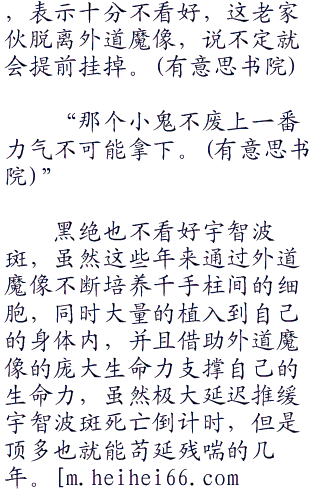 ，表示十分不看好，这老家
伙脱离外道魔像，说不定就
会提前挂掉。(有意思书院)
“那个小鬼不废上一番
力气不可能拿下。(有意思书
院)”
黑绝也不看好宇智波
斑，虽然这些年来通过外道
魔像不断培养千手柱间的细
胞，同时大量的植入到自己
的身体内，并且借助外道魔
像的庞大生命力支撑自己的
生命力，虽然极大延迟推缓
宇智波斑死亡倒计时，但是
顶多也就能苟延残喘的几
年。[m.heihei66.com